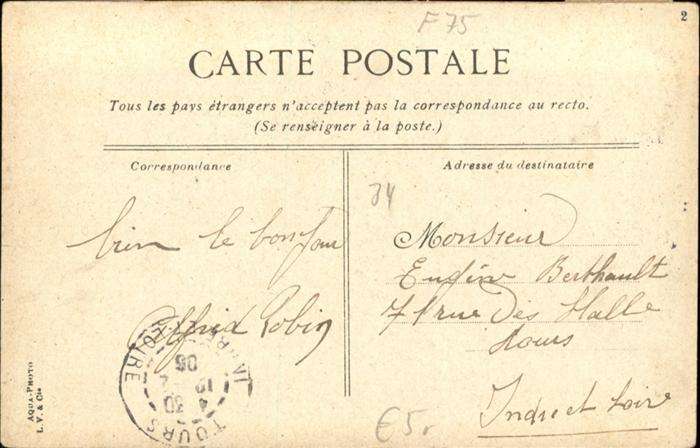 F 75
2
CARTE POSTALE
Tous les pays étrangers n'acceptent pas la correspondance au recto.
(Se renseigner à la poste.)
Correspondance
bien le bonjour
Alfrid Robin
Adresse du destinataire
34
Monsieur
Eugène Berthault
71 rue des Halle
Tours
Indre et Loire
€5,
TOURS
INDRE
LOIRE
4 30
12
06
AQUA-PHOTO
L. V. & Cie